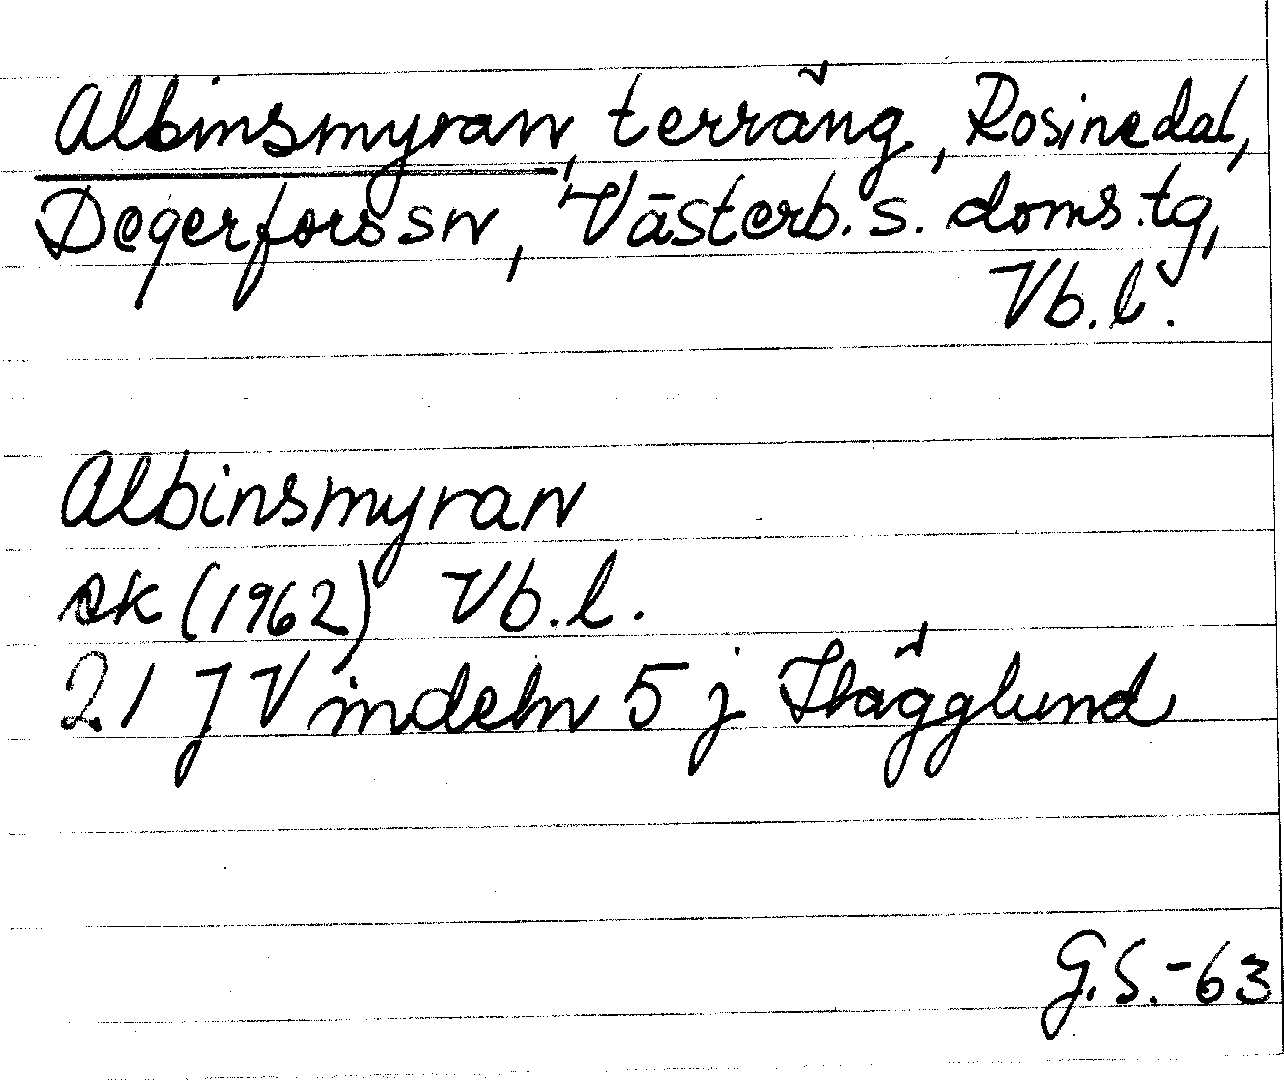 Albinsmyran, terräng, Rosinedal,
Degerfors sn, Västerb. s. doms. tg,
Vb. l.
Albinsmyran
ek (1962) Vb. l.
21 J Vindeln 5 j Hägglund
G.S.-63